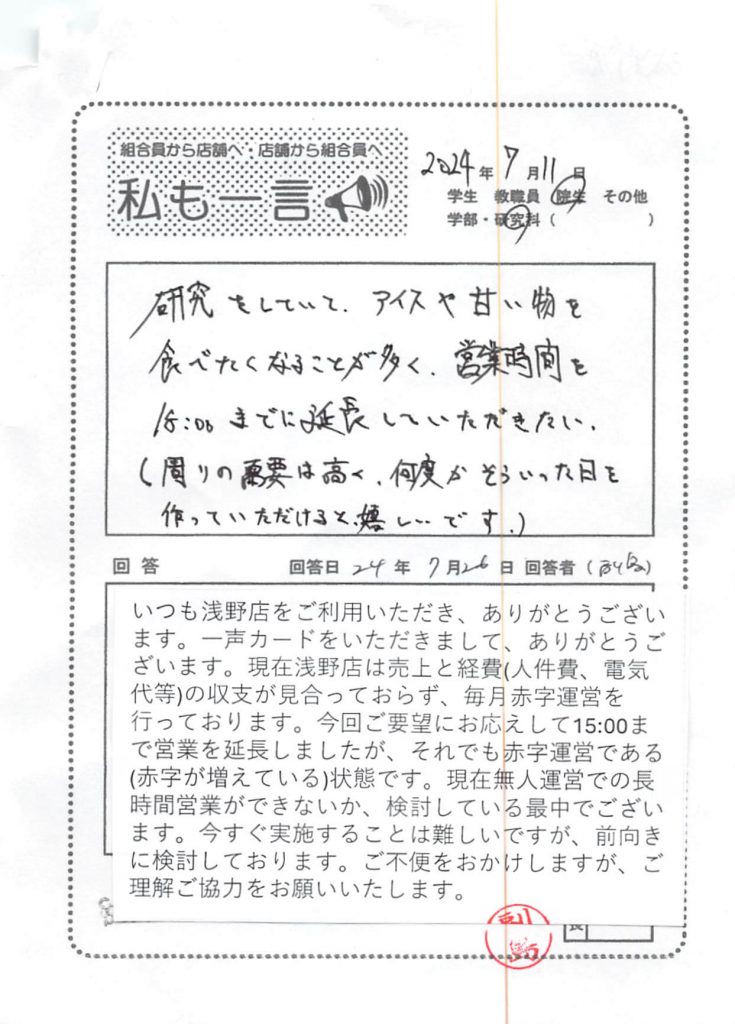 組合員から店舗へ・店舗から組合員へ
私も一言
2024年7月11日
学生 教職員 院生 その他
学部・研究科( )
研究をしていて、アイスや甘い物を
食べたくなることが多く、営業時間を
15:00までに延長していただきたい。
(周りの需要は高く、何度かそういった日を
作っていただけると、嬉しいです。)
回答 回答日 24年7月26日 回答者(
いつも浅野店をご利用いただき、ありがとうござい
ます。一声カードをいただきまして、ありがとうご
ざいます。現在浅野店は売上と経費(人件費、電気
代等)の収支が見合っておらず、毎月赤字運営を
行っております。今回ご要望にお応えして15:00ま
で営業を延長しましたが、それでも赤字運営である
(赤字が増えている)状態です。現在無人運営での長
時間営業ができないか、検討している最中でござい
ます。今すぐ実施することは難しいですが、前向き
に検討しております。ご不便をおかけしますが、ご
理解ご協力をお願いいたします。
長